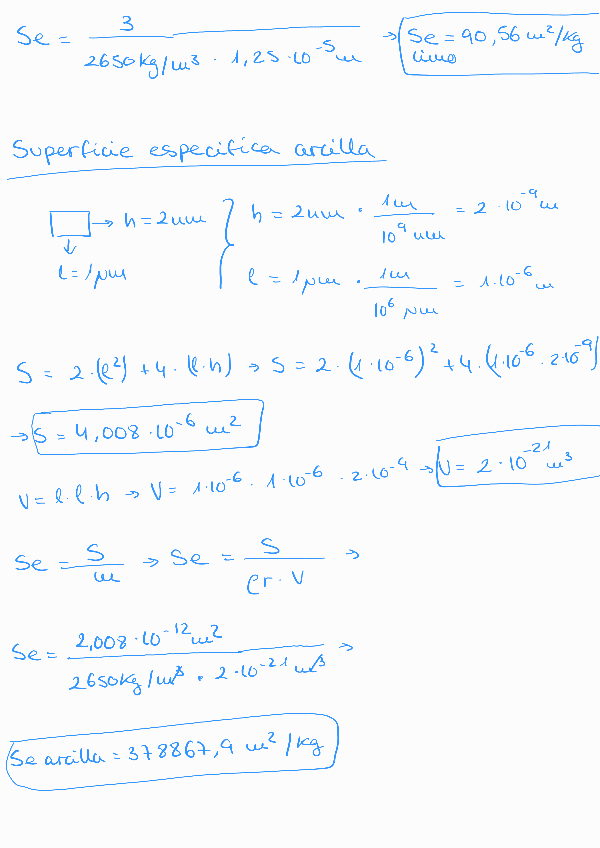 Se = 3 / (2650 kg/m³ · 1,25·10⁻⁵ m) → Se limo = 90,56 m²/kg
Superficie especifica arcilla
→ h = 2nm
↓
l = 1μm
h = 2nm · 1m / 10⁹ nm = 2·10⁻⁹ m
l = 1μm · 1m / 10⁶ μm = 1·10⁻⁶ m
S = 2·(l²) + 4·(l·h) → S = 2·(1·10⁻⁶)² + 4·(1·10⁻⁶·2·10⁻⁹)
→ S = 4,008·10⁻⁶ m²
V = l·l·h → V = 1·10⁻⁶ · 1·10⁻⁶ · 2·10⁻⁹ → V = 2·10⁻²¹ m³
Se = S / m → Se = S / (ρr · V) →
Se = 2,008·10⁻¹² m² / (2650 kg/m³ · 2·10⁻²¹ m³) →
Se arcilla = 378867,9 m²/kg